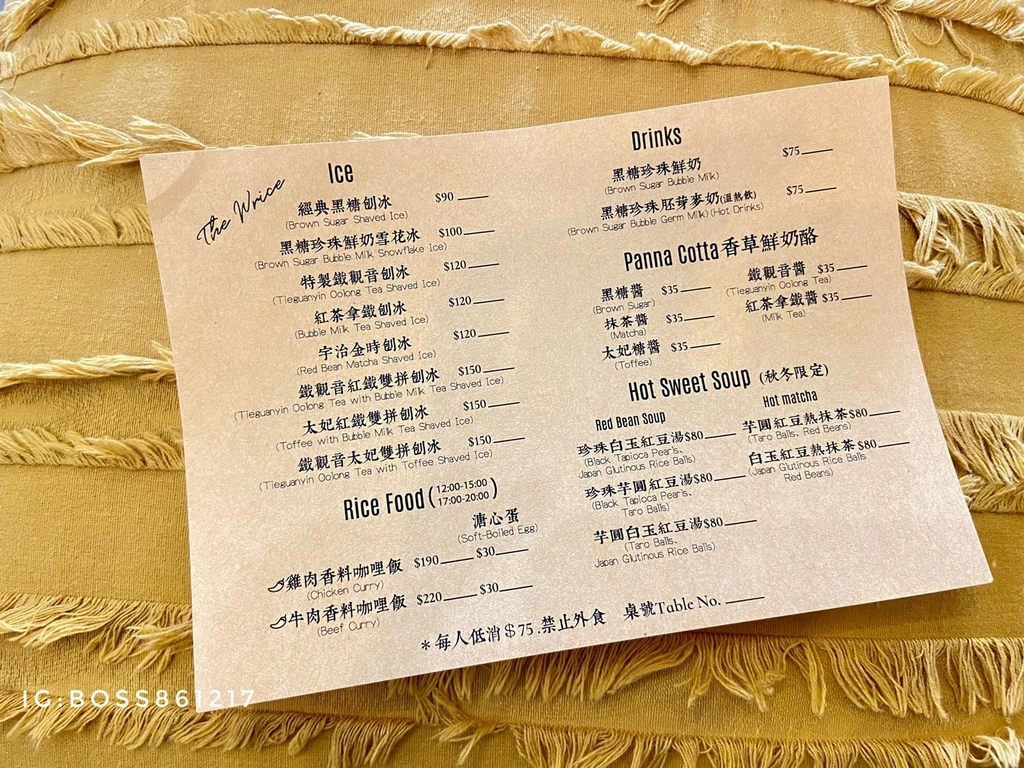 The Wrice
Ice
經典黑糖刨冰 $90
(Brown Sugar Shaved Ice)
黑糖珍珠鮮奶雪花冰 $100
(Brown Sugar Bubble Milk Snowflake Ice)
特製鐵觀音刨冰 $120
(Tieguanyin Oolong Tea Shaved Ice)
紅茶拿鐵刨冰 $120
(Bubble Milk Tea Shaved Ice)
宇治金時刨冰 $120
(Red Bean Matcha Shaved Ice)
鐵觀音紅鐵雙拼刨冰 $150
(Tieguanyin Oolong Tea with Bubble Milk Tea Shaved Ice)
太妃紅鐵雙拼刨冰 $150
(Toffee with Bubble Milk Tea Shaved Ice)
鐵觀音太妃雙拼刨冰 $150
(Tieguanyin Oolong Tea with Toffee Shaved Ice)
Rice Food (12:00-15:00
17:00-20:00)
溏心蛋
(Soft-Boiled Egg)
雞肉香料咖哩飯 $190 $30
(Chicken Curry)
牛肉香料咖哩飯 $220 $30
(Beef Curry)
Drinks
黑糖珍珠鮮奶 $75
(Brown Sugar Bubble Milk)
黑糖珍珠胚芽麥奶(溫熱飲) $75
(Brown Sugar Bubble Germ Milk)(Hot Drinks)
Panna Cotta 香草鮮奶酪
黑糖醬 $35
(Brown Sugar)
抹茶醬 $35
(Matcha)
太妃糖醬 $35
(Toffee)
鐵觀音醬 $35
(Tieguanyin Oolong Tea)
紅茶拿鐵醬 $35
(Milk Tea)
Hot Sweet Soup (秋冬限定)
Red Bean Soup
珍珠白玉紅豆湯 $80
(Black Tapioca Pearls、
Japan Glutinous Rice Balls)
珍珠芋圓紅豆湯 $80
(Black Tapioca Pearls、
Taro Balls)
芋圓白玉紅豆湯 $80
(Taro Balls、
Japan Glutinous Rice Balls)
Hot matcha
芋圓紅豆熱抹茶 $80
(Taro Balls、Red Beans)
白玉紅豆熱抹茶 $80
(Japan Glutinous Rice Balls
Red Beans)
*每人低消$75.禁止外食 桌號Table No.
IG:BOSS861217